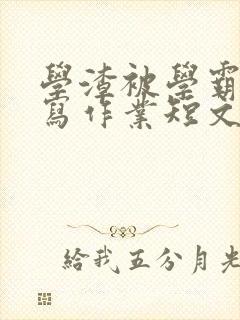 學渣被學霸
寫作業短文
給我五分月光